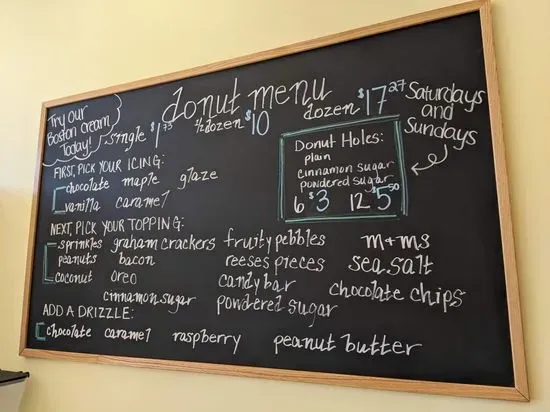 donut menu
Try our
Boston Cream
Today!
single $1.75
½ dozen $10
dozen $17.27
Saturdays
and
Sundays
Donut Holes:
plain
cinnamon sugar
powdered sugar
6 $3 12 $5.50
FIRST, PICK YOUR ICING:
chocolate maple glaze
vanilla caramel
NEXT, PICK YOUR TOPPING:
sprinkles graham crackers fruity pebbles m+ms
peanuts bacon reeses pieces sea salt
coconut oreo candy bar chocolate chips
cinnamon sugar powdered sugar
ADD A DRIZZLE:
chocolate caramel raspberry peanut butter